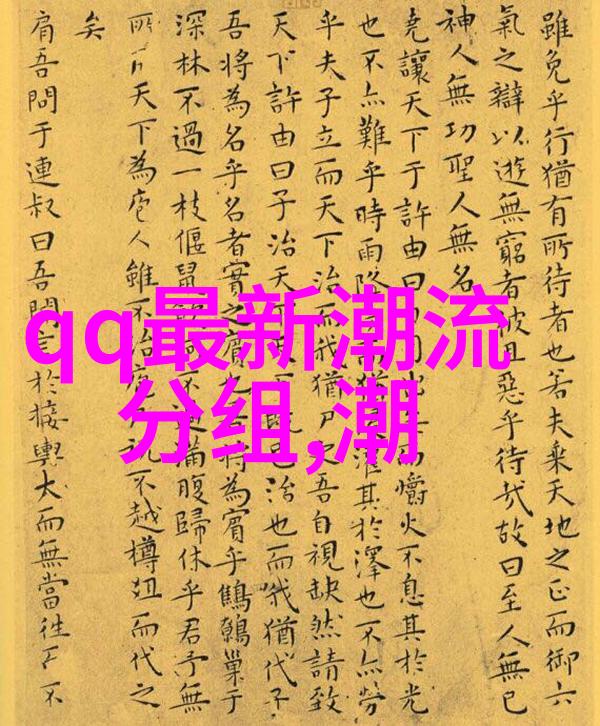 qq最新潮流
分组,潮
雖免乎行猶有所待者也若夫乘天地之正而御六
氣之辯以遊無窮者彼且惡乎待哉故曰至人無己
神人無功聖人無名
堯讓天下于許由曰 而爝火不息其於光
也不亦難乎時雨降 猶 灌其於澤也不亦勞
乎夫子立而天下治而我猶尸之吾自視缺然請致
天下許由曰子治天下 既已治也而我猶代子
吾將為名乎名者實之賓也 將為賓乎鷦鷯巢于
深林不過一枝偃鼠飲河不過滿腹歸休乎君予無
所 天下為庖人雖不治庖 祝不越樽俎而代之
矣
肩吾問于連叔曰吾聞言於接輿大而無當往 不